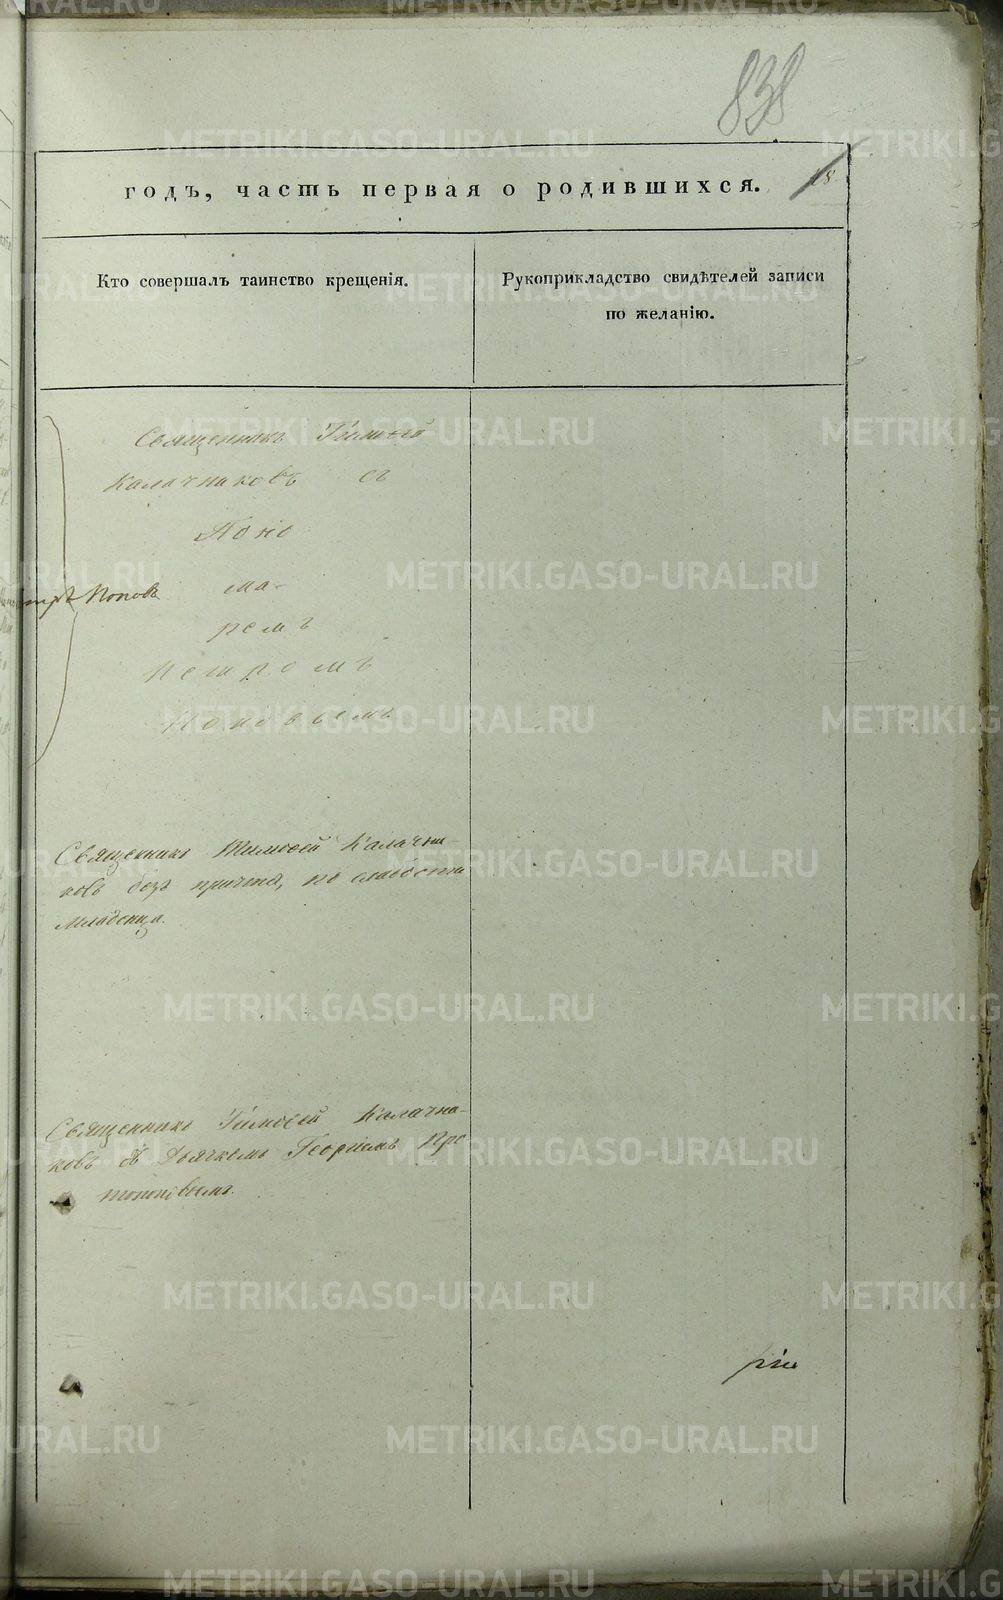 838
годъ, часть первая о родившихся.
18
Кто совершалъ таинство крещенія.
Рукоприкладство свидѣтелей записи
по желанію.
Священникъ Тимоѳей
Калачниковъ съ
Поно
ма-
ремъ
Петромъ
Поповымъ
Поповъ
Священникъ Тимоѳей Калачни-
ковъ безъ причта, по слабости
младенца.
Священникъ Тимоѳей Калачни-
ковъ съ Дьячкомъ Георгіемъ Про
топоповымъ.
METRIKI.GASO-URAL.RU